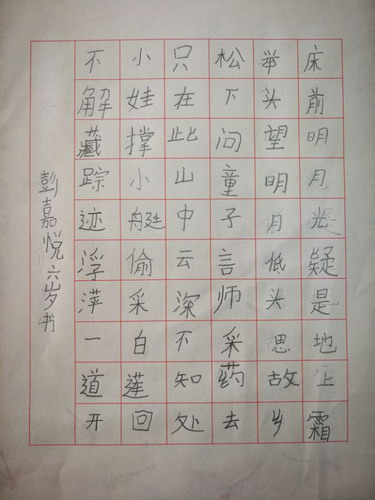 床前明月光疑是地上霜
举头望明月低头思故乡
松下问童子言师采药去
只在此山中云深不知处
小娃撑小艇偷采白莲回
不解藏踪迹浮萍一道开
彭嘉悦六岁书